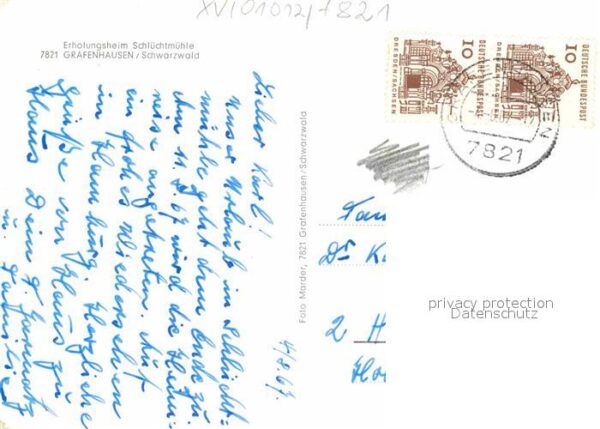 XV/01012/7821
Erholungsheim Schlüchtmühle
7821 GRAFENHAUSEN / Schwarzwald
DEUTSCHE BUNDESPOST
10
DRESDEN/SACHSEN
DEUTSCHE BUNDESPOST
10
DRESDEN/SACHSEN
7821
4.8.67
Lieber Karl!
Unser Urlaub in Schlücht=
mühle geht dem Ende zu.
Am 11.8.67 wird die Heim=
reise angetreten. Auf
ein frohes Wiedersehen
in Hamburg. Herzliche
Grüße von Haus zu
Haus Dein
u. Familie
Foto Marder, 7821 Grafenhausen/Schwarzwald
Fam
Dr K
2 H
privacy protection
Datenschutz